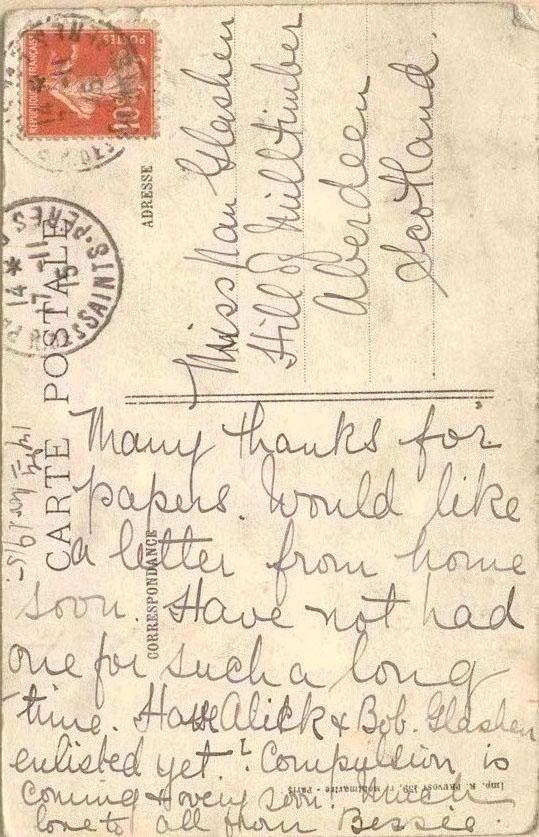 CARTE POSTALE
ADRESSE
CORRESPONDANCE
REPUBLIQUE FRANÇAISE
POSTES
10c
14 * 7 - 11 15
STS-PERES
Miss Nan Glashen
Hill of Milltimber
Aberdeen
Scotland.
Many thanks for
papers. Would like
a letter from home
soon. Have not had
one for such a long
time. Have Alick & Bob. Glashen
enlisted yet? Compulsion is
coming & very soon. Much
love to all from Bessie.
1915
Imp. R. PRUVOST 159, r. Montmartre - Paris